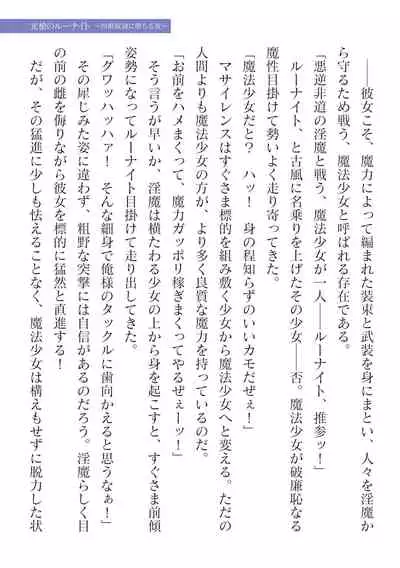 光槍のルーナイト
――彼女こそ、魔力によって編まれた装束と武装を身にまとい、人々を淫魔か
ら守るため戦う、魔法少女と呼ばれる存在である。
「悪逆非道の淫魔と戦う、魔法少女が一人――ルーナイト、推参ッ！」
　ルーナイト、と古風に名乗りを上げたその少女――否。魔法少女が破廉恥なる
魔性目掛けて勢いよく走り寄ってきた。
「魔法少女だと？　ハッ！　身の程知らずのいいカモだぜぇ！」
　マサイレンスはすぐさま標的を組み敷く少女から魔法少女へと変える。ただの
人間よりも魔法少女の方が、より多く良質な魔力を持っているのだ。
「お前をハメまくって、魔力ガッポリ稼ぎまくってやるぜぇーッ！」
　そう言うが早いか、淫魔は横たわる少女の上から身を起こすと、すぐさま前傾
姿勢になってルーナイト目掛けて走り出してきた。
「ダワッハッハァ！　そんな細身で俺様のタックルに歯向かえると思うなぁ！」
　その犀じみた姿に違わず、粗野な突撃には自信があるのだろう。淫魔らしく目
の前の雌を侮りながら彼女を標的に猛然と直進する！
　だが、その猛進に少しも怯えることなく、魔法少女は構えもせずに脱力した状